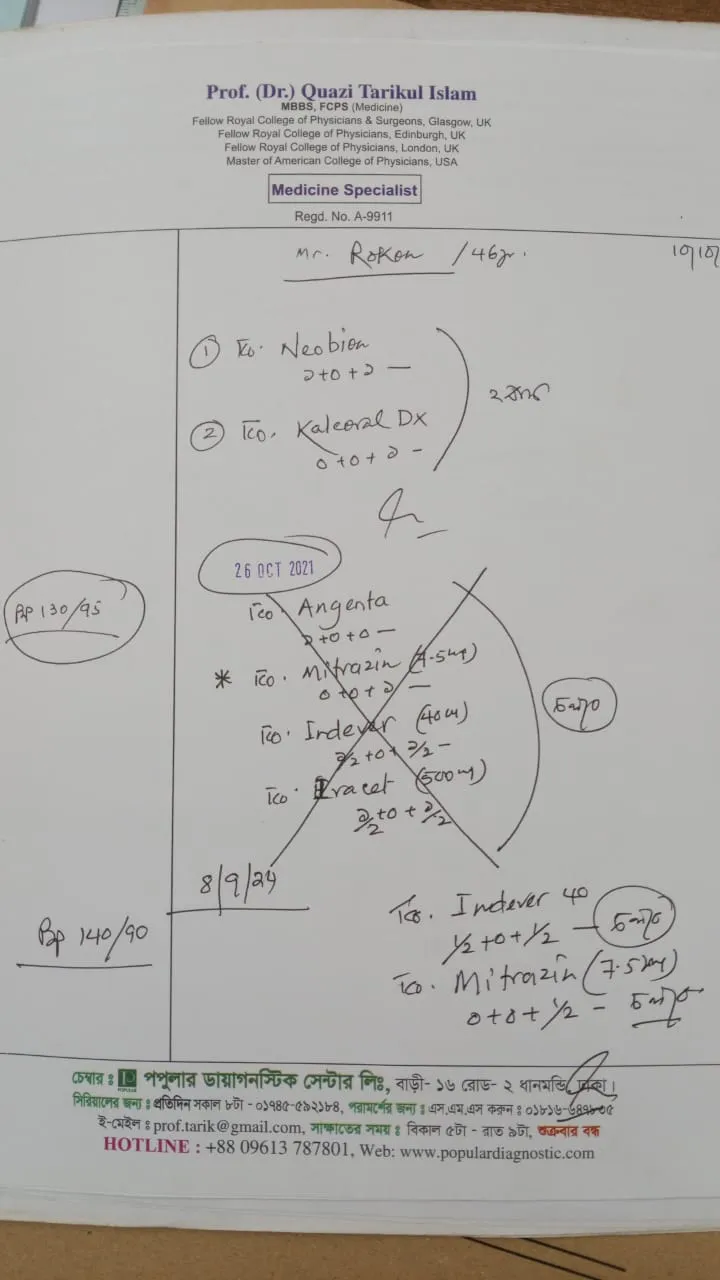 Prof. (Dr.) Quazi Tarikul Islam
MBBS, FCPS (Medicine)
Fellow Royal College of Physicians & Surgeons, Glasgow, UK
Fellow Royal College of Physicians, Edinburgh, UK
Fellow Royal College of Physicians, London, UK
Master of American College of Physicians, USA
Medicine Specialist
Regd. No. A-9911
Mr. Rokon / 46yr.
① Tab. Neobion
১+০+১ —
② Tab. Kalcoral DX
০+০+১ —
26 OCT 2021
BP 130/95
Tab. Angenta
১+০+০ —
* Tab. Mitrazin (7.5mg)
০+০+১ —
Tab. Indever (40mg)
১/২+০+১/২ —
Tab. Iracet (500mg)
১/২+০+১/২
চলবে
8/9/24
BP 140/90
Tab. Indever 40
1/2+0+1/2 — চলবে
Tab. Mitrazin (7.5mg)
0+0+1/2 — চলবে
চেম্বার : পপুলার ডায়াগনস্টিক সেন্টার লিঃ, বাড়ী- ১৬ রোড- ২ ধানমন্ডি, ঢাকা।
সিরিয়ালের জন্য : প্রতিদিন সকাল ৮টা - ০১৭৪৫-৫৯২১৮৪, পরামর্শের জন্য : এস.এম.এস করুন : ০১৮১৬-
ই-মেইল : prof.tarik@gmail.com, সাক্ষাতের সময় : বিকাল ৫টা - রাত ৯টা, শুক্রবার বন্ধ
HOTLINE : +88 09613 787801, Web: www.populardiagnostic.com